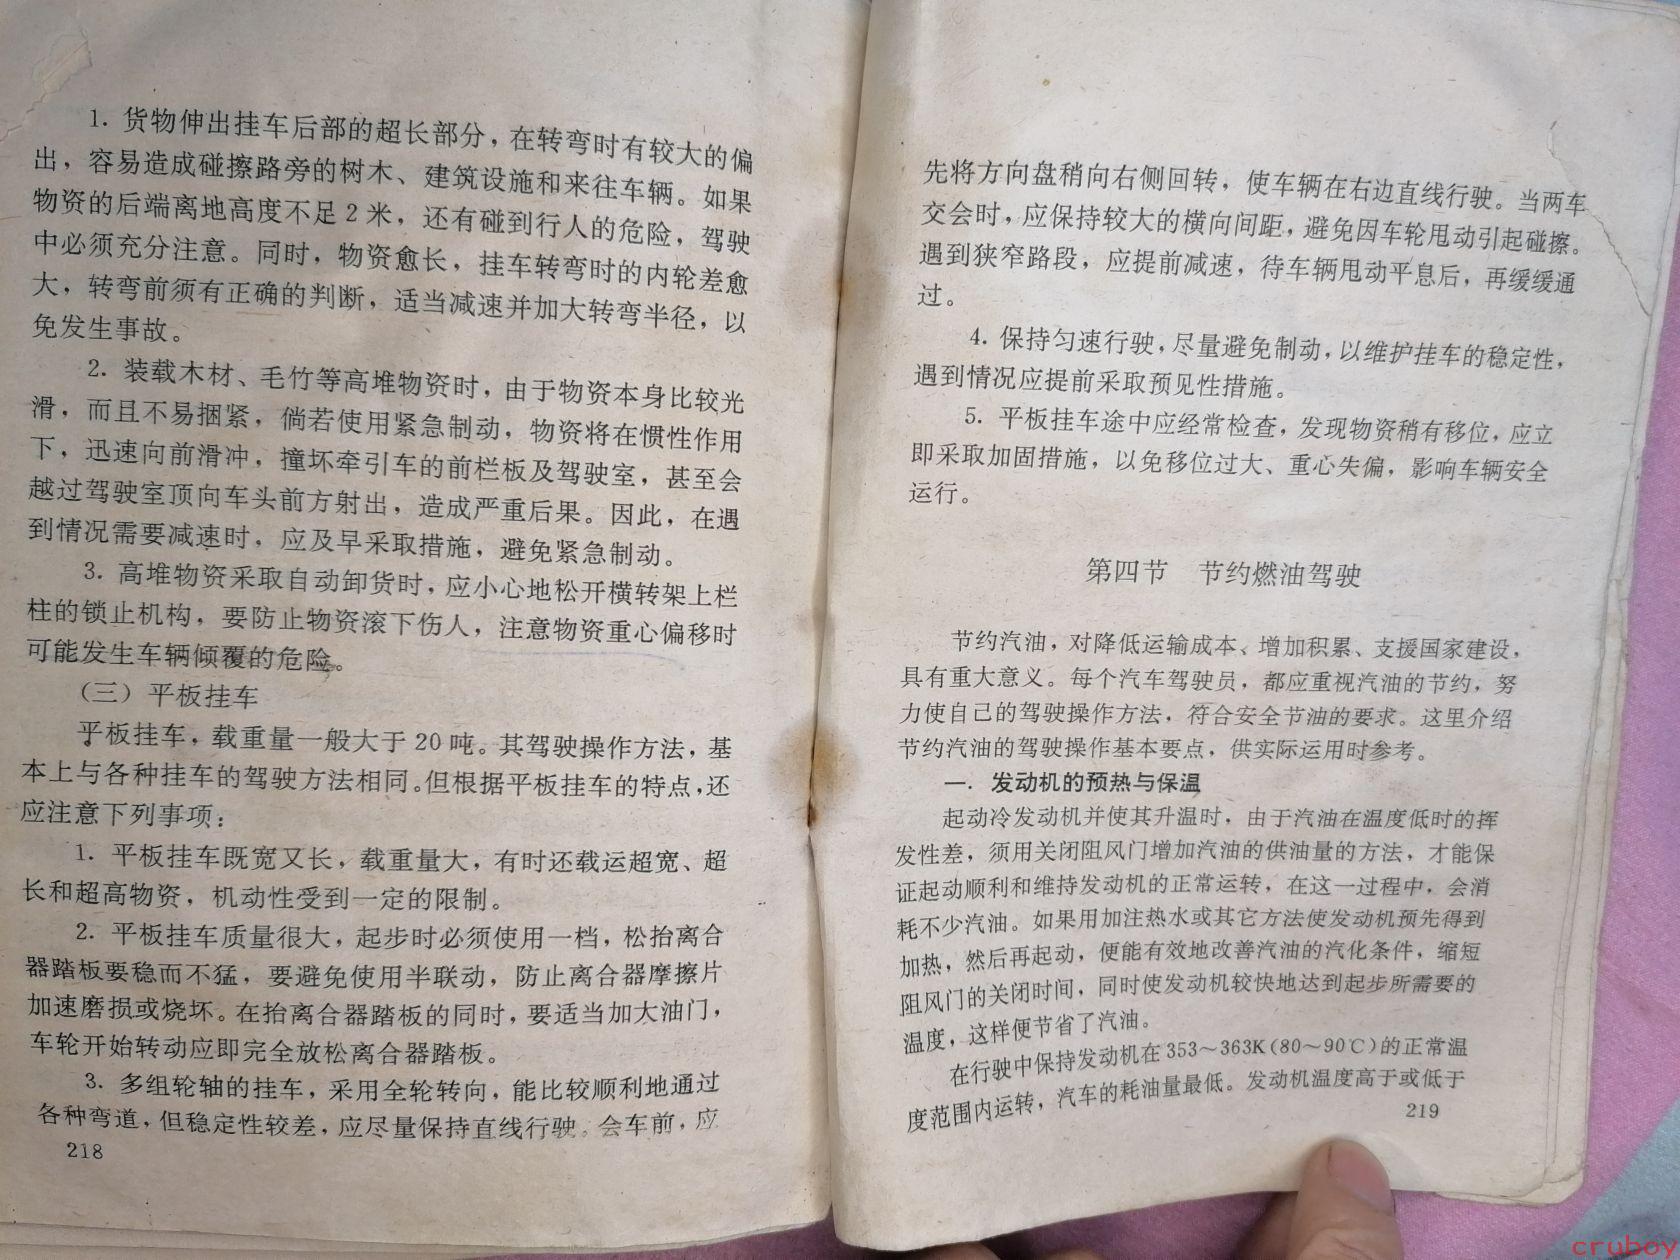 1. 货物伸出挂车后部的超长部分，在转弯时有较大的偏
出，容易造成碰擦路旁的树木、建筑设施和来往车辆。如果
物资的后端离地高度不足2米，还有碰到行人的危险，驾驶
中必须充分注意。同时，物资愈长，挂车转弯时的内轮差愈
大，转弯前须有正确的判断，适当减速并加大转弯半径，以
免发生事故。
2. 装载木材、毛竹等高堆物资时，由于物资本身比较光
滑，而且不易捆紧，倘若使用紧急制动，物资将在惯性作用
下，迅速向前滑冲，撞坏牵引车的前栏板及驾驶室，甚至会
越过驾驶室顶向车头前方射出，造成严重后果。因此，在遇
到情况需要减速时，应及早采取措施，避免紧急制动。
3. 高堆物资采取自动卸货时，应小心地松开横转架上栏
柱的锁止机构，要防止物资滚下伤人，注意物资重心偏移时
可能发生车辆倾覆的危险。
（三）平板挂车
平板挂车，载重量一般大于20吨。其驾驶操作方法，基
本上与各种挂车的驾驶方法相同。但根据平板挂车的特点，还
应注意下列事项：
1. 平板挂车既宽又长，载重量大，有时还载运超宽、超
长和超高物资，机动性受到一定的限制。
2. 平板挂车质量很大，起步时必须使用一档，松抬离合
器踏板要稳而不猛，要避免使用半联动，防止离合器摩擦片
加速磨损或烧坏。在抬离合器踏板的同时，要适当加大油门，
车轮开始转动应即完全放松离合器踏板。
3. 多组轮轴的挂车，采用全轮转向，能比较顺利地通过
各种弯道，但稳定性较差，应尽量保持直线行驶。会车前，应
218
先将方向盘稍向右侧回转，使车辆在右边直线行驶。当两车
交会时，应保持较大的横向间距，避免因车轮甩动引起碰擦。
遇到狭窄路段，应提前减速，待车辆甩动平息后，再缓缓通
过。
4. 保持匀速行驶，尽量避免制动，以维护挂车的稳定性，
遇到情况应提前采取预见性措施。
5. 平板挂车途中应经常检查，发现物资稍有移位，应立
即采取加固措施，以免移位过大、重心失偏，影响车辆安全
运行。
第四节 节约燃油驾驶
节约汽油，对降低运输成本、增加积累、支援国家建设，
具有重大意义。每个汽车驾驶员，都应重视汽油的节约，努
力使自己的驾驶操作方法，符合安全节油的要求。这里介绍
节约汽油的驾驶操作基本要点，供实际运用时参考。
一．发动机的预热与保温
起动冷发动机并使其升温时，由于汽油在温度低时的挥
发性差，须用关闭阻风门增加汽油的供油量的方法，才能保
证起动顺利和维持发动机的正常运转，在这一过程中，会消
耗不少汽油。如果用加注热水或其它方法使发动机预先得到
加热，然后再起动，便能有效地改善汽油的汽化条件，缩短
阻风门的关闭时间，同时使发动机较快地达到起步所需要的
温度，这样便节省了汽油。
在行驶中保持发动机在353～363K(80～90℃)的正常温
度范围内运转，汽车的耗油量最低。发动机温度高于或低于
219
cruboy